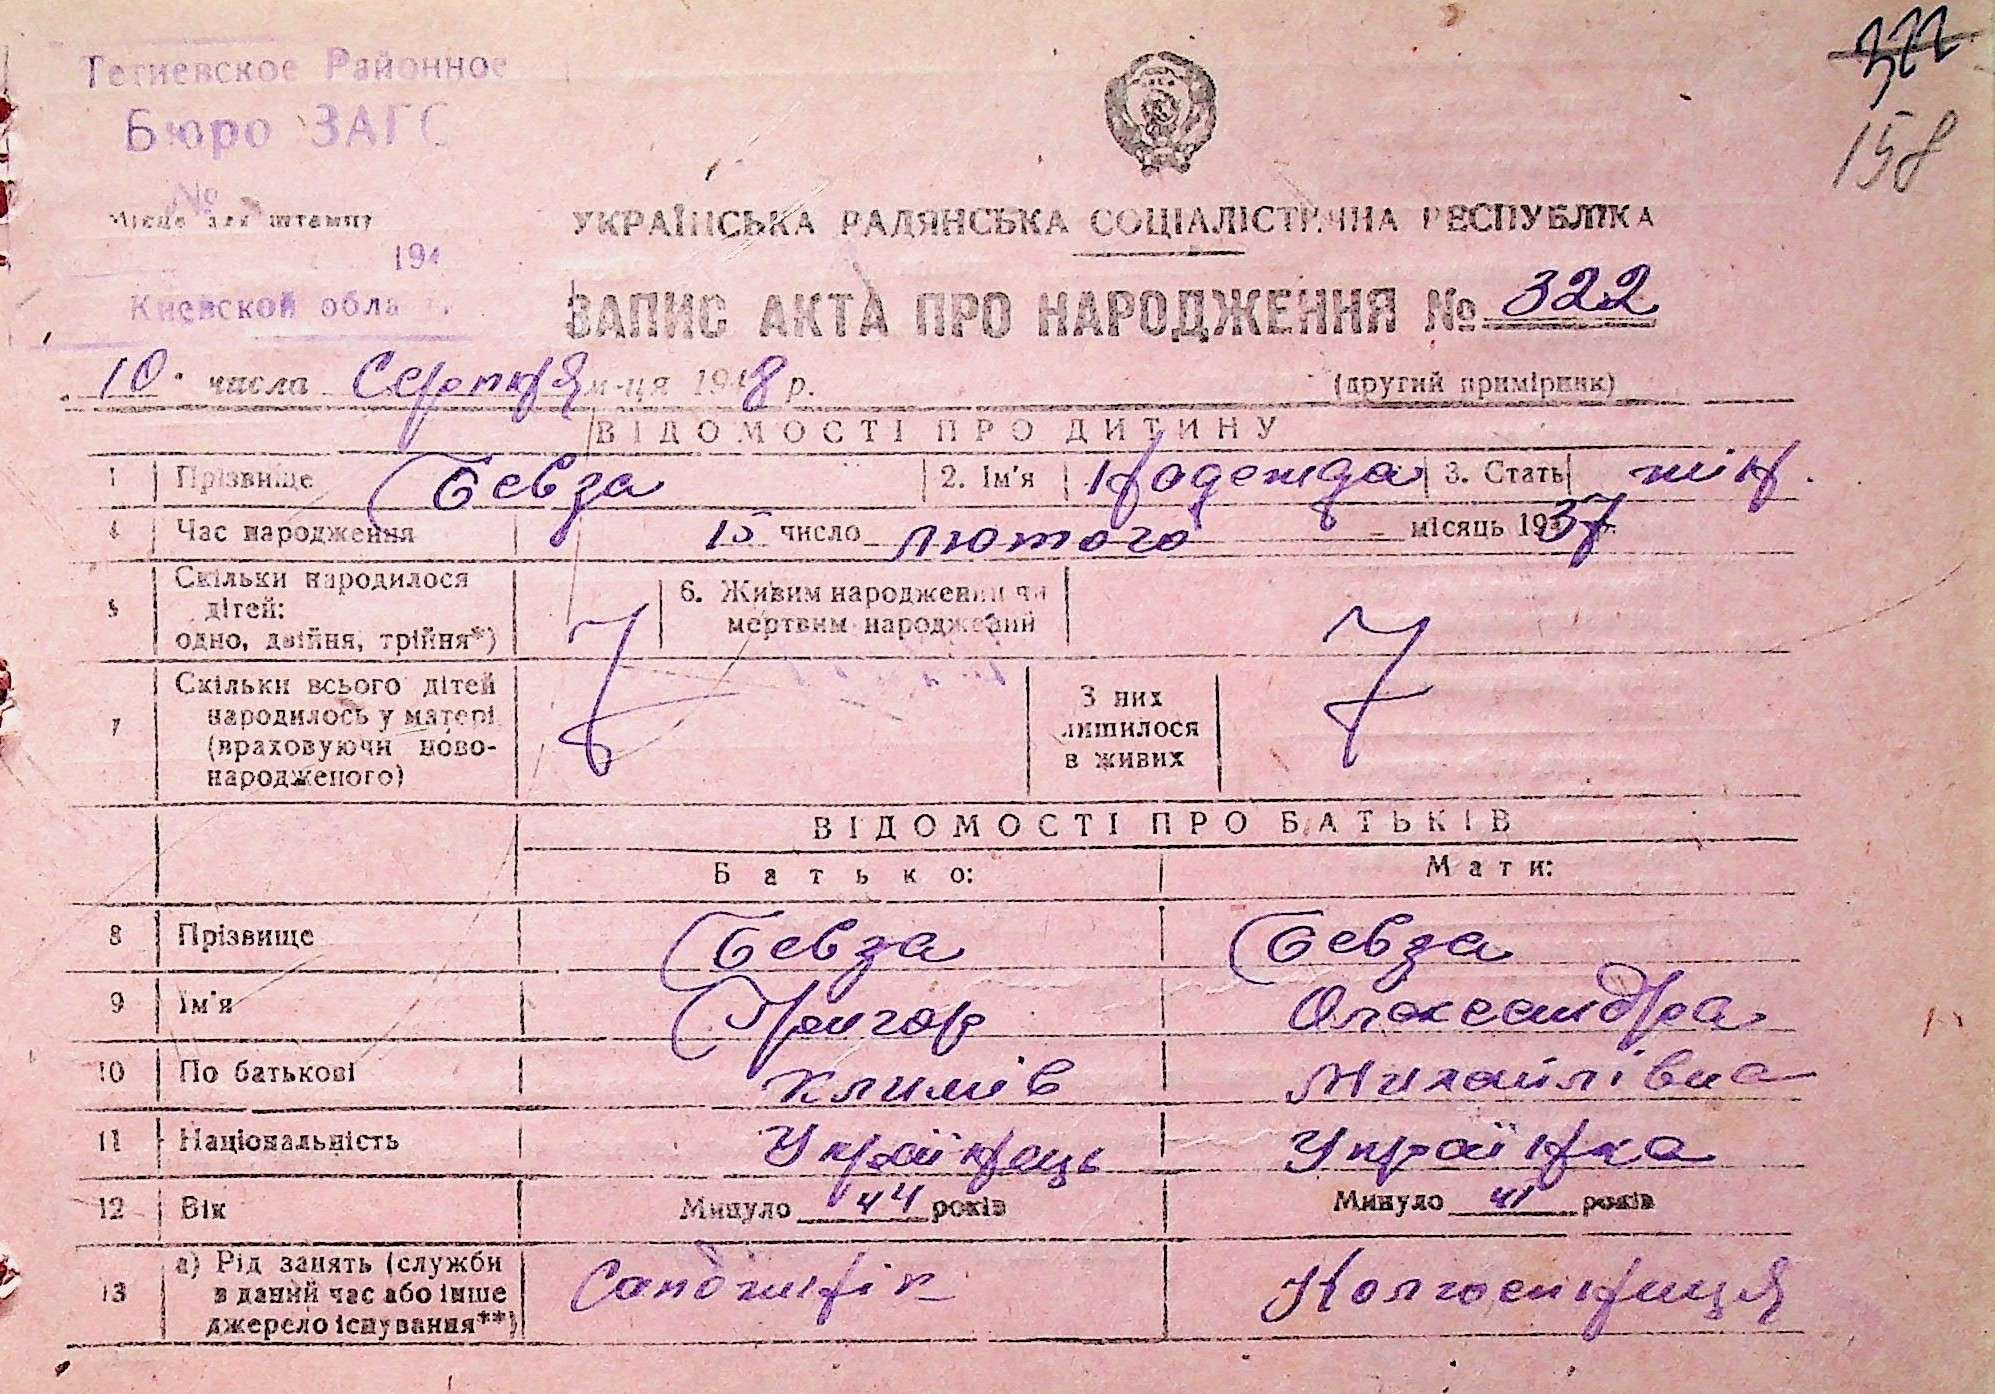 322
158
Тетиевское Районное
Бюро ЗАГС
№
Місце для штампу
194
Киевской области
УКРАЇНСЬКА РАДЯНСЬКА СОЦІАЛІСТИЧНА РЕСПУБЛІКА
ЗАПИС АКТА ПРО НАРОДЖЕННЯ № 322
10 числа Серпня м-ця 1948 р. (другий примірник)
ВІДОМОСТІ ПРО ДИТИНУ
1 Прізвище Бевза 2. Ім'я Надежда 3. Стать жін.
4 Час народження 15 число лютого місяць 1937
5 Скільки народилося дітей: одно, двійня, трійня*) 6. Живим народжений чи мертвим народжений
7 Скільки всього дітей народилось у матері (враховуючи ново-народженого) 7 З них лишилося в живих 7
ВІДОМОСТІ ПРО БАТЬКІВ
Батько: Мати:
8 Прізвище Бевза Бевза
9 Ім'я Григор Олександра
10 По батькові Климів Михайлівна
11 Національність Українець Українка
12 Вік Минуло 44 років Минуло 41 років
13 а) Рід занять (служби в даний час або інше джерело існування**) Колгоспниця